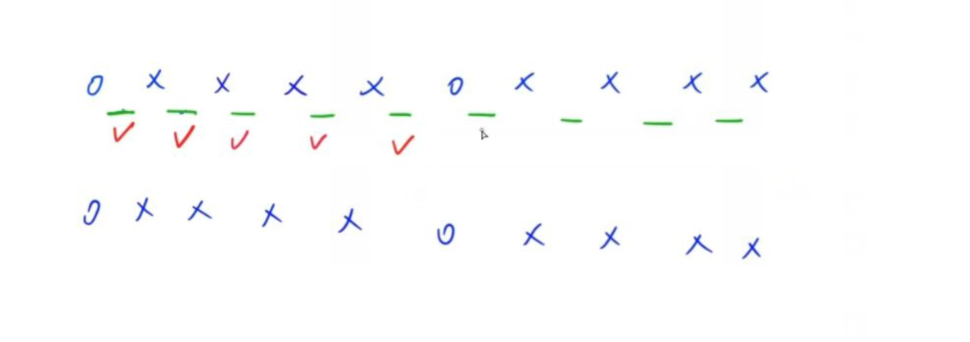 0 x x x x 0 x x x x
_ _ _ _ _ _ _ _ _
✓ ✓ ✓ ✓ ✓
0 x x x x 0 x x x x